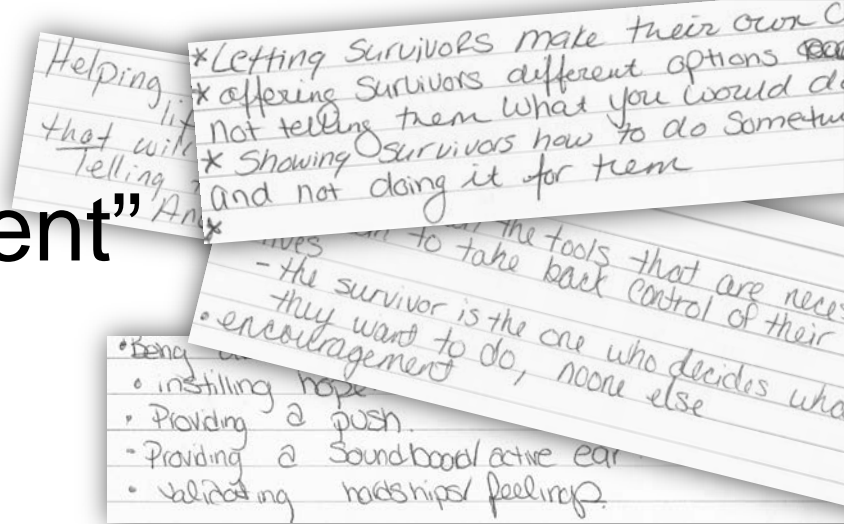 Helping
that will
Telling
ent”
*Letting survivors make their own
* offering survivors different options
not telling them what you would
* Showing survivors how to do
and not doing it for them
*
the tools that are
to take back control of their
- the survivor is the one who decides
they want to do, noone else
• encouragement
• Being
• instilling hope
• Providing a push.
- Providing a Soundbood/active ear
• validating hadships/feelings.